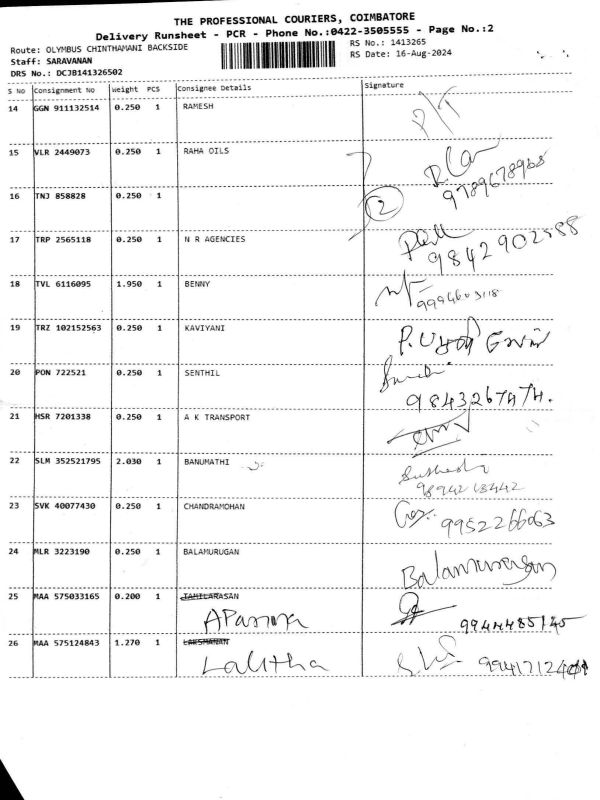 THE PROFESSIONAL COURIERS, COIMBATORE
Delivery Runsheet - PCR - Phone No.:0422-3505555 - Page No.:2
Route: OLYMBUS CHINTHAMANI BACKSIDE
RS No.: 1413265
Staff: SARAVANAN
RS Date: 16-Aug-2024
DRS No.: DCJB141326502
S No Consignment No Weight PCS Consignee Details Signature
14 GGN 911132514 0.250 1 RAMESH
15 VLR 2449073 0.250 1 RAHA OILS
9789678968
16 TNJ 858828 0.250 1
2
17 TRP 2565118 0.250 1 N R AGENCIES
9842902588
18 TVL 6116095 1.950 1 BENNY
9994603118
19 TRZ 102152563 0.250 1 KAVIYANI
20 PON 722521 0.250 1 SENTHIL
9843267474.
21 HSR 7201338 0.250 1 A K TRANSPORT
22 SLM 352521795 2.030 1 BANUMATHI
23 SVK 40077430 0.250 1 CHANDRAMOHAN
9952266063
24 MLR 3223190 0.250 1 BALAMURUGAN
Balamurugan
25 MAA 575033165 0.200 1 TAMILARASAN
9944485145
26 MAA 575124843 1.270 1 LAKSMANAN
Lalitha